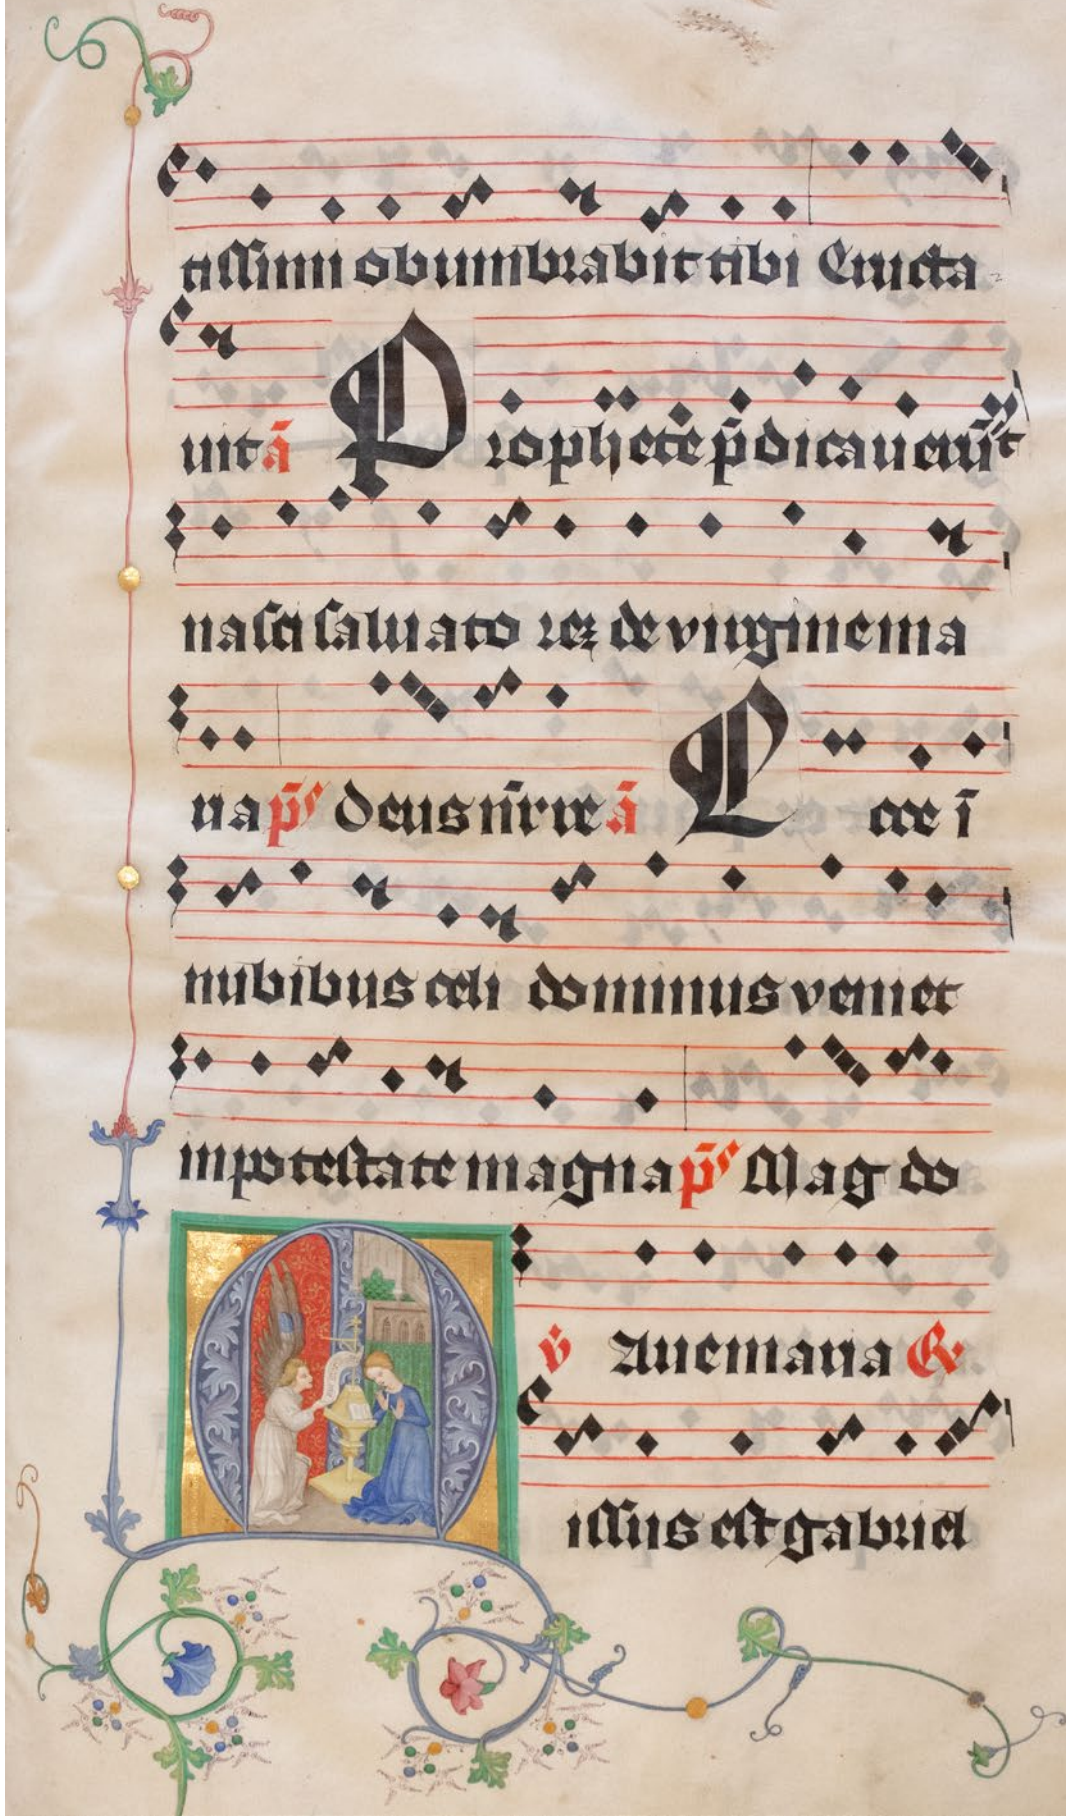 tissimi obumbrabit tibi Eructa-
uit ā Prophete p̄dicauerūt
nasci saluatorez de virgine ma
ria p̄s deus nr̄r re ā Ecce ī
nubibus celi dominus veniet
in potestate magna p̄s Mag do
v̄ Aue maria R
Missus est gabriel